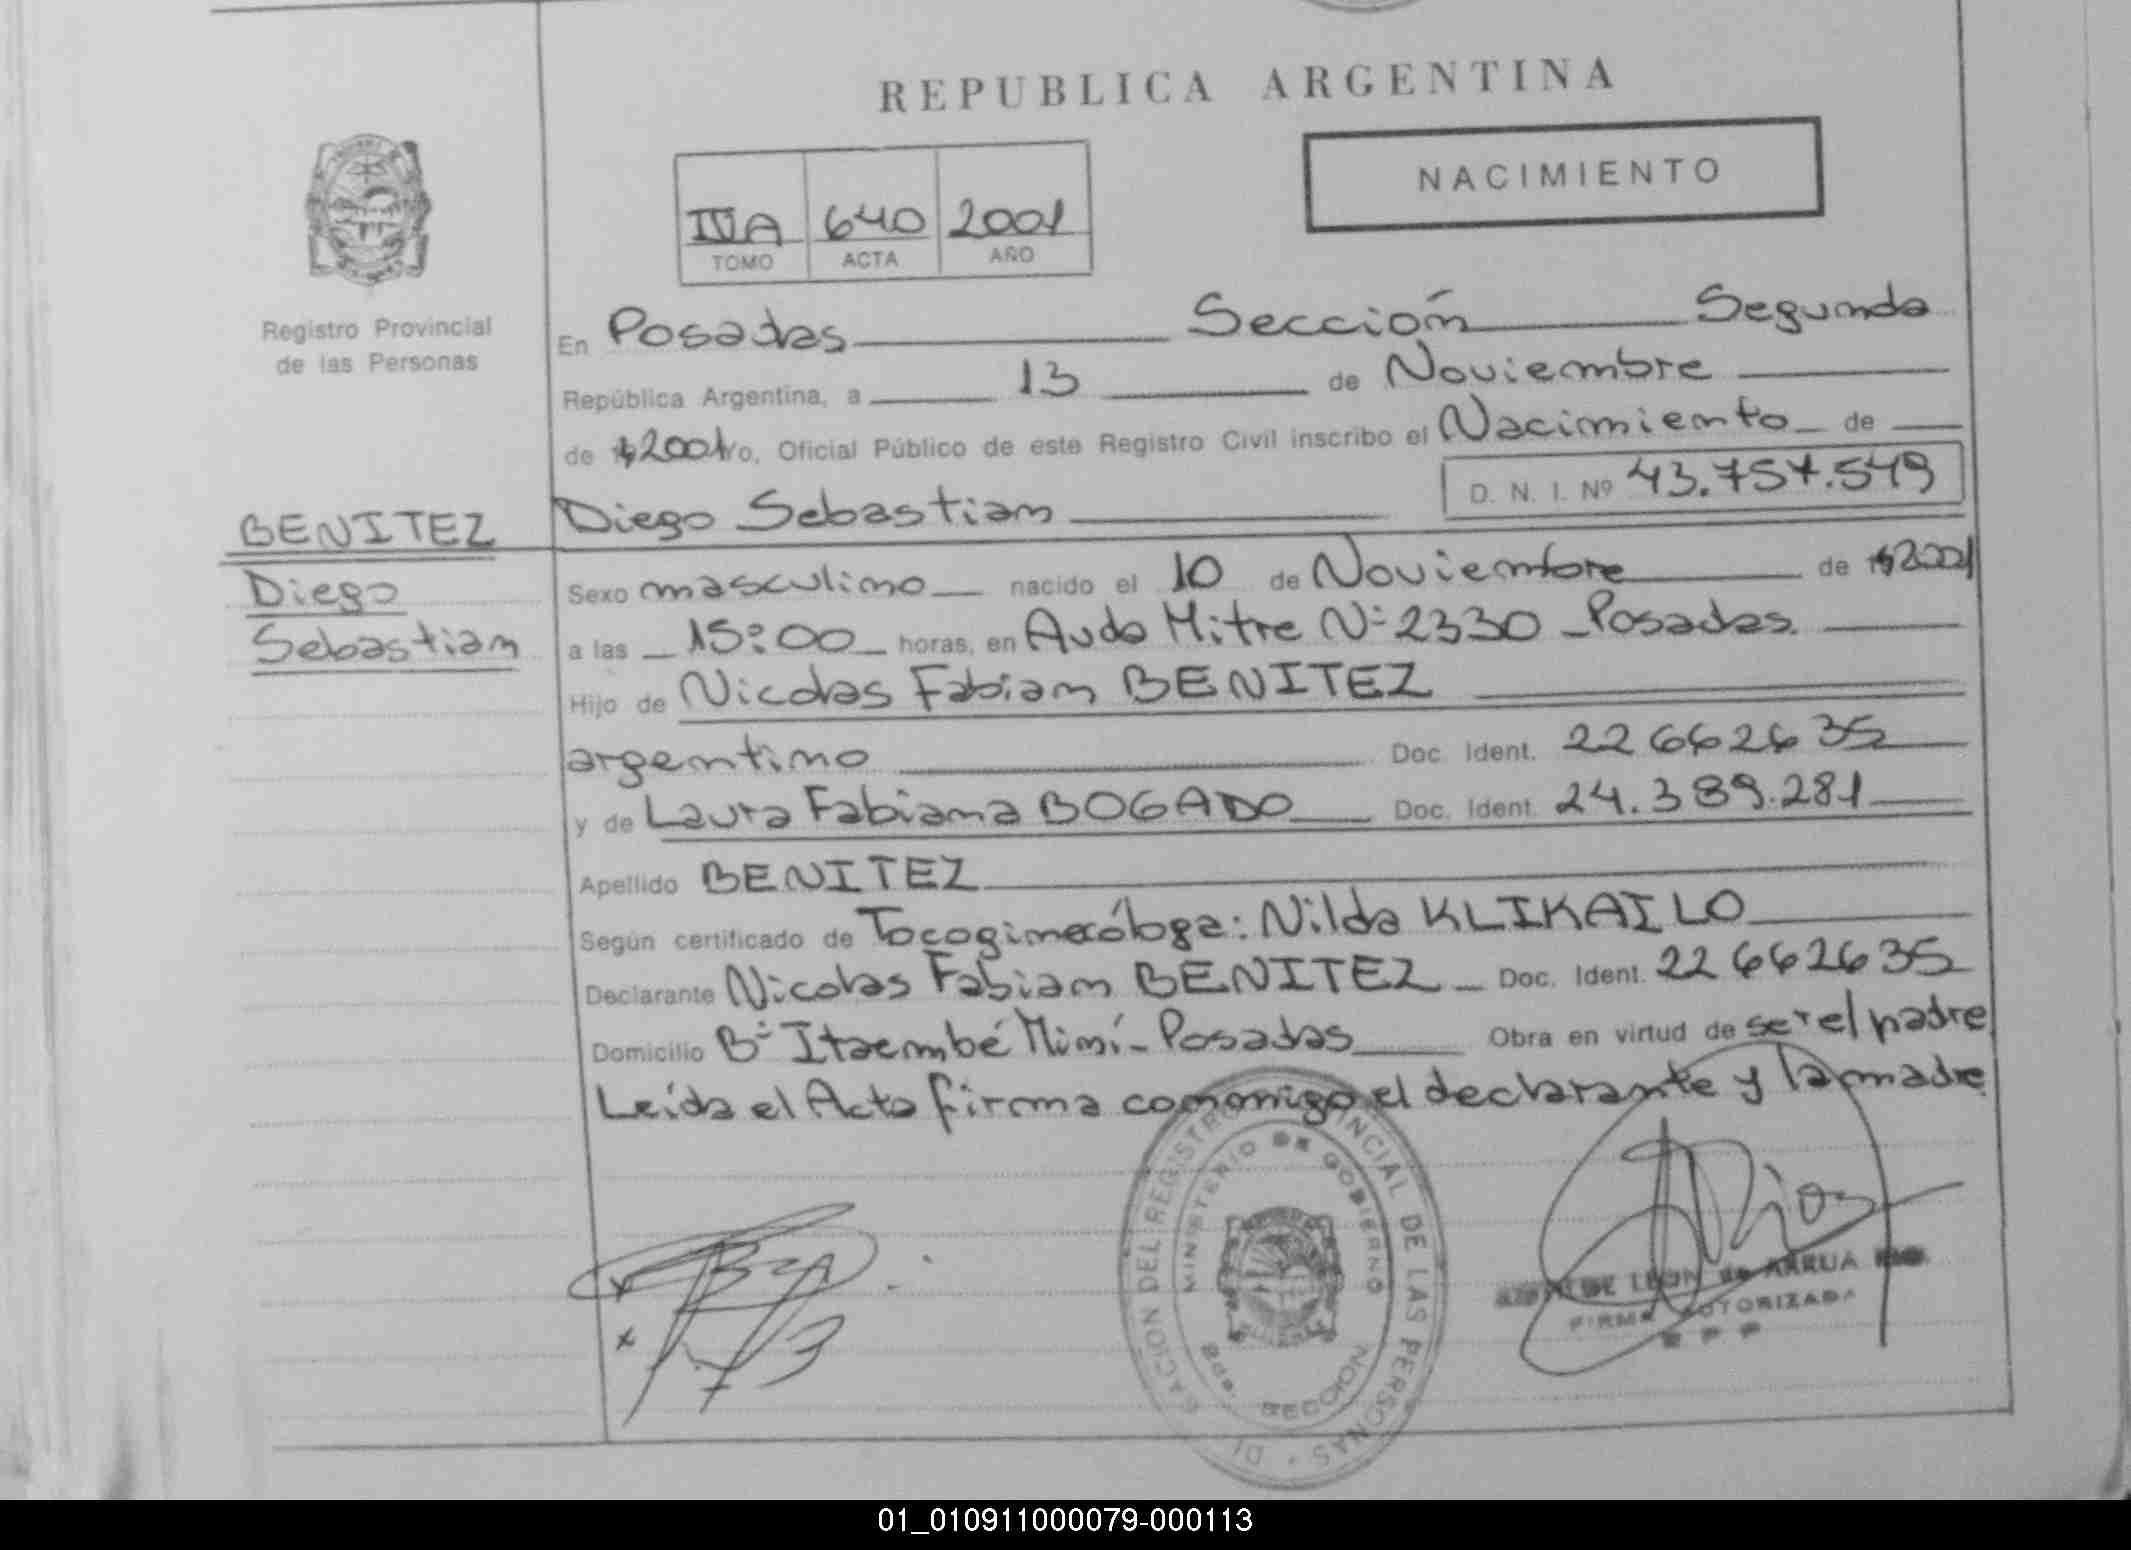 REPUBLICA ARGENTINA
NACIMIENTO
IVA 640 2001
TOMO ACTA AÑO
Registro Provincial
de las Personas
En Posadas Sección Segunda
República Argentina, a 13 de Noviembre
de 2001 yo, Oficial Público de este Registro Civil inscribo el Nacimiento de
D. N. I. Nº 43.757.549
BENITEZ
Diego
Sebastian
Diego Sebastian
Sexo masculino nacido el 10 de Noviembre de 2001
a las 15:00 horas, en Avda Mitre Nº 2330 - Posadas.
Hijo de Nicolas Fabian BENITEZ
argentino Doc. Ident. 22662635
y de Laura Fabiana BOGADO Doc. Ident. 24.389.281
Apellido BENITEZ
Según certificado de Tocoginecóloga: Nilda KLIKAILO
Declarante Nicolas Fabian BENITEZ Doc. Ident. 22662635
Domicilio Bº Itaembé Miní - Posadas Obra en virtud de ser el padre
Leída el Acta firma conmigo el declarante y la madre
REGISTRO PROVINCIAL DE LAS PERSONAS
MINISTERIO DE GOBIERNO
SECCION
LEON de ARRUA
FIRMA AUTORIZADA
01_010911000079-000113